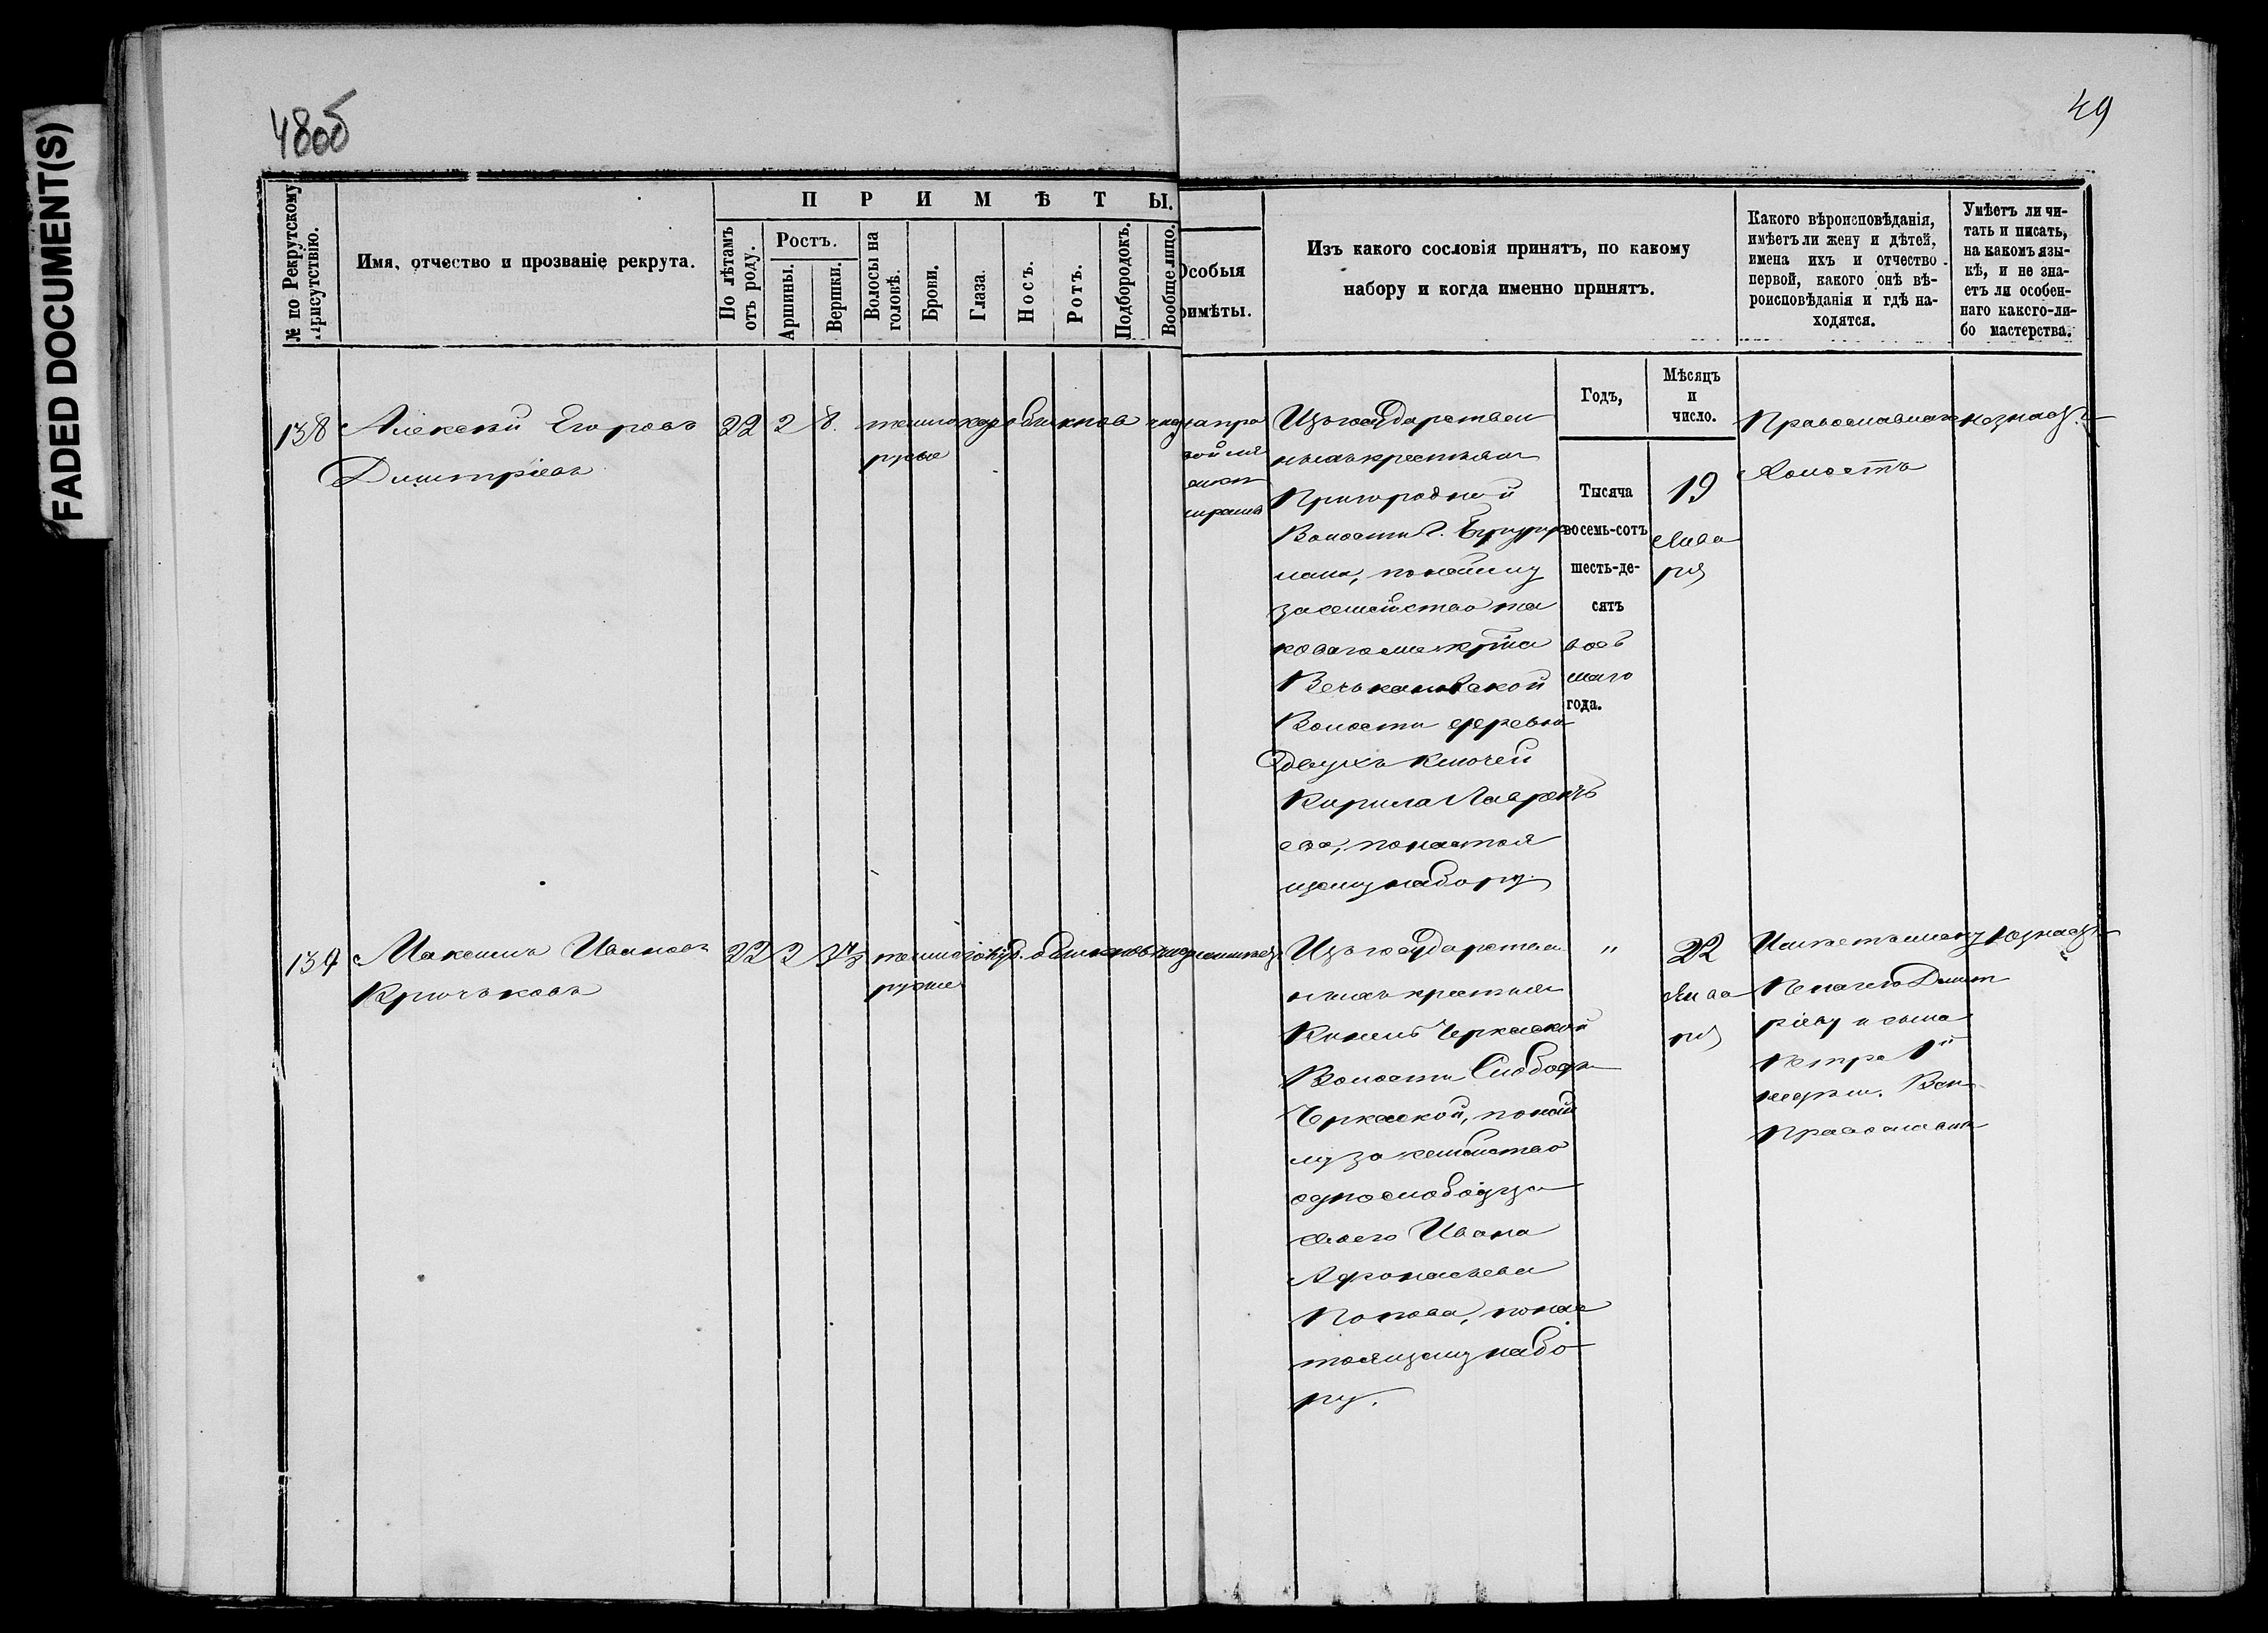 FADED DOCUMENT(S)
48об
49
№ по Рекрутскому Присутствію.
Имя, отчество и прозваніе рекрута.
П Р И М Ѣ Т Ы.
По лѣтамъ отъ роду.
Ростъ.
Аршины.
Вершки.
Волосы на головѣ.
Брови.
Глаза.
Носъ.
Ротъ.
Подбородокъ.
Вообще лицо.
Особыя
римѣты.
Изъ какого сословія принятъ, по какому
набору и когда именно принятъ.
Какого вѣроисповѣданія,
имѣетъ ли жену и дѣтей,
имена ихъ и отчество
первой, какого онѣ вѣ-
роисповѣданія и гдѣ на-
ходятся.
Умѣетъ ли чи-
тать и писать,
на какомъ язы-
кѣ, и не зна-
етъ ли особен-
наго какого-ли-
бо мастерства.
Годъ,
Мѣсяцъ
и
число.
138 Алексѣй Егоровъ 22 2 8. темно кар обыкнов
Дмитріевъ
русые
на пра
вой
шрамъ
Изъ государствен
ныхъ крестьян
Пригородной
Волости г. Бугурус
лана, по найму
за семейство та
коваго же кр-на
Вечькановской
Волости деревни
Двухъ Ключей
Кирила Лаврентъ
ева, по настоя
щему набору.
Тысяча
восемь-сотъ
шесть-де-
сятъ
вось
маго
года.
19
Янва
ря
Православнаго незнаетъ
Холостъ
139 Максимъ Ивановъ 22 2 7 темно обыкнов
Крючьковъ
русые
Изъ государствен
ныхъ крестьян
Кинель Черкаской
Волости Слободы
Черкаской, по най
му за семейство
однослободца
своего Ивана
Афонасьева
Попова, по нас
тоящему набо
ру.
"
22
Янва
ря
Имѣетъ жену незнаетъ
Пелагею Дмит
ріеву и сына
Петра 1й
недѣли. Вѣр
Православн